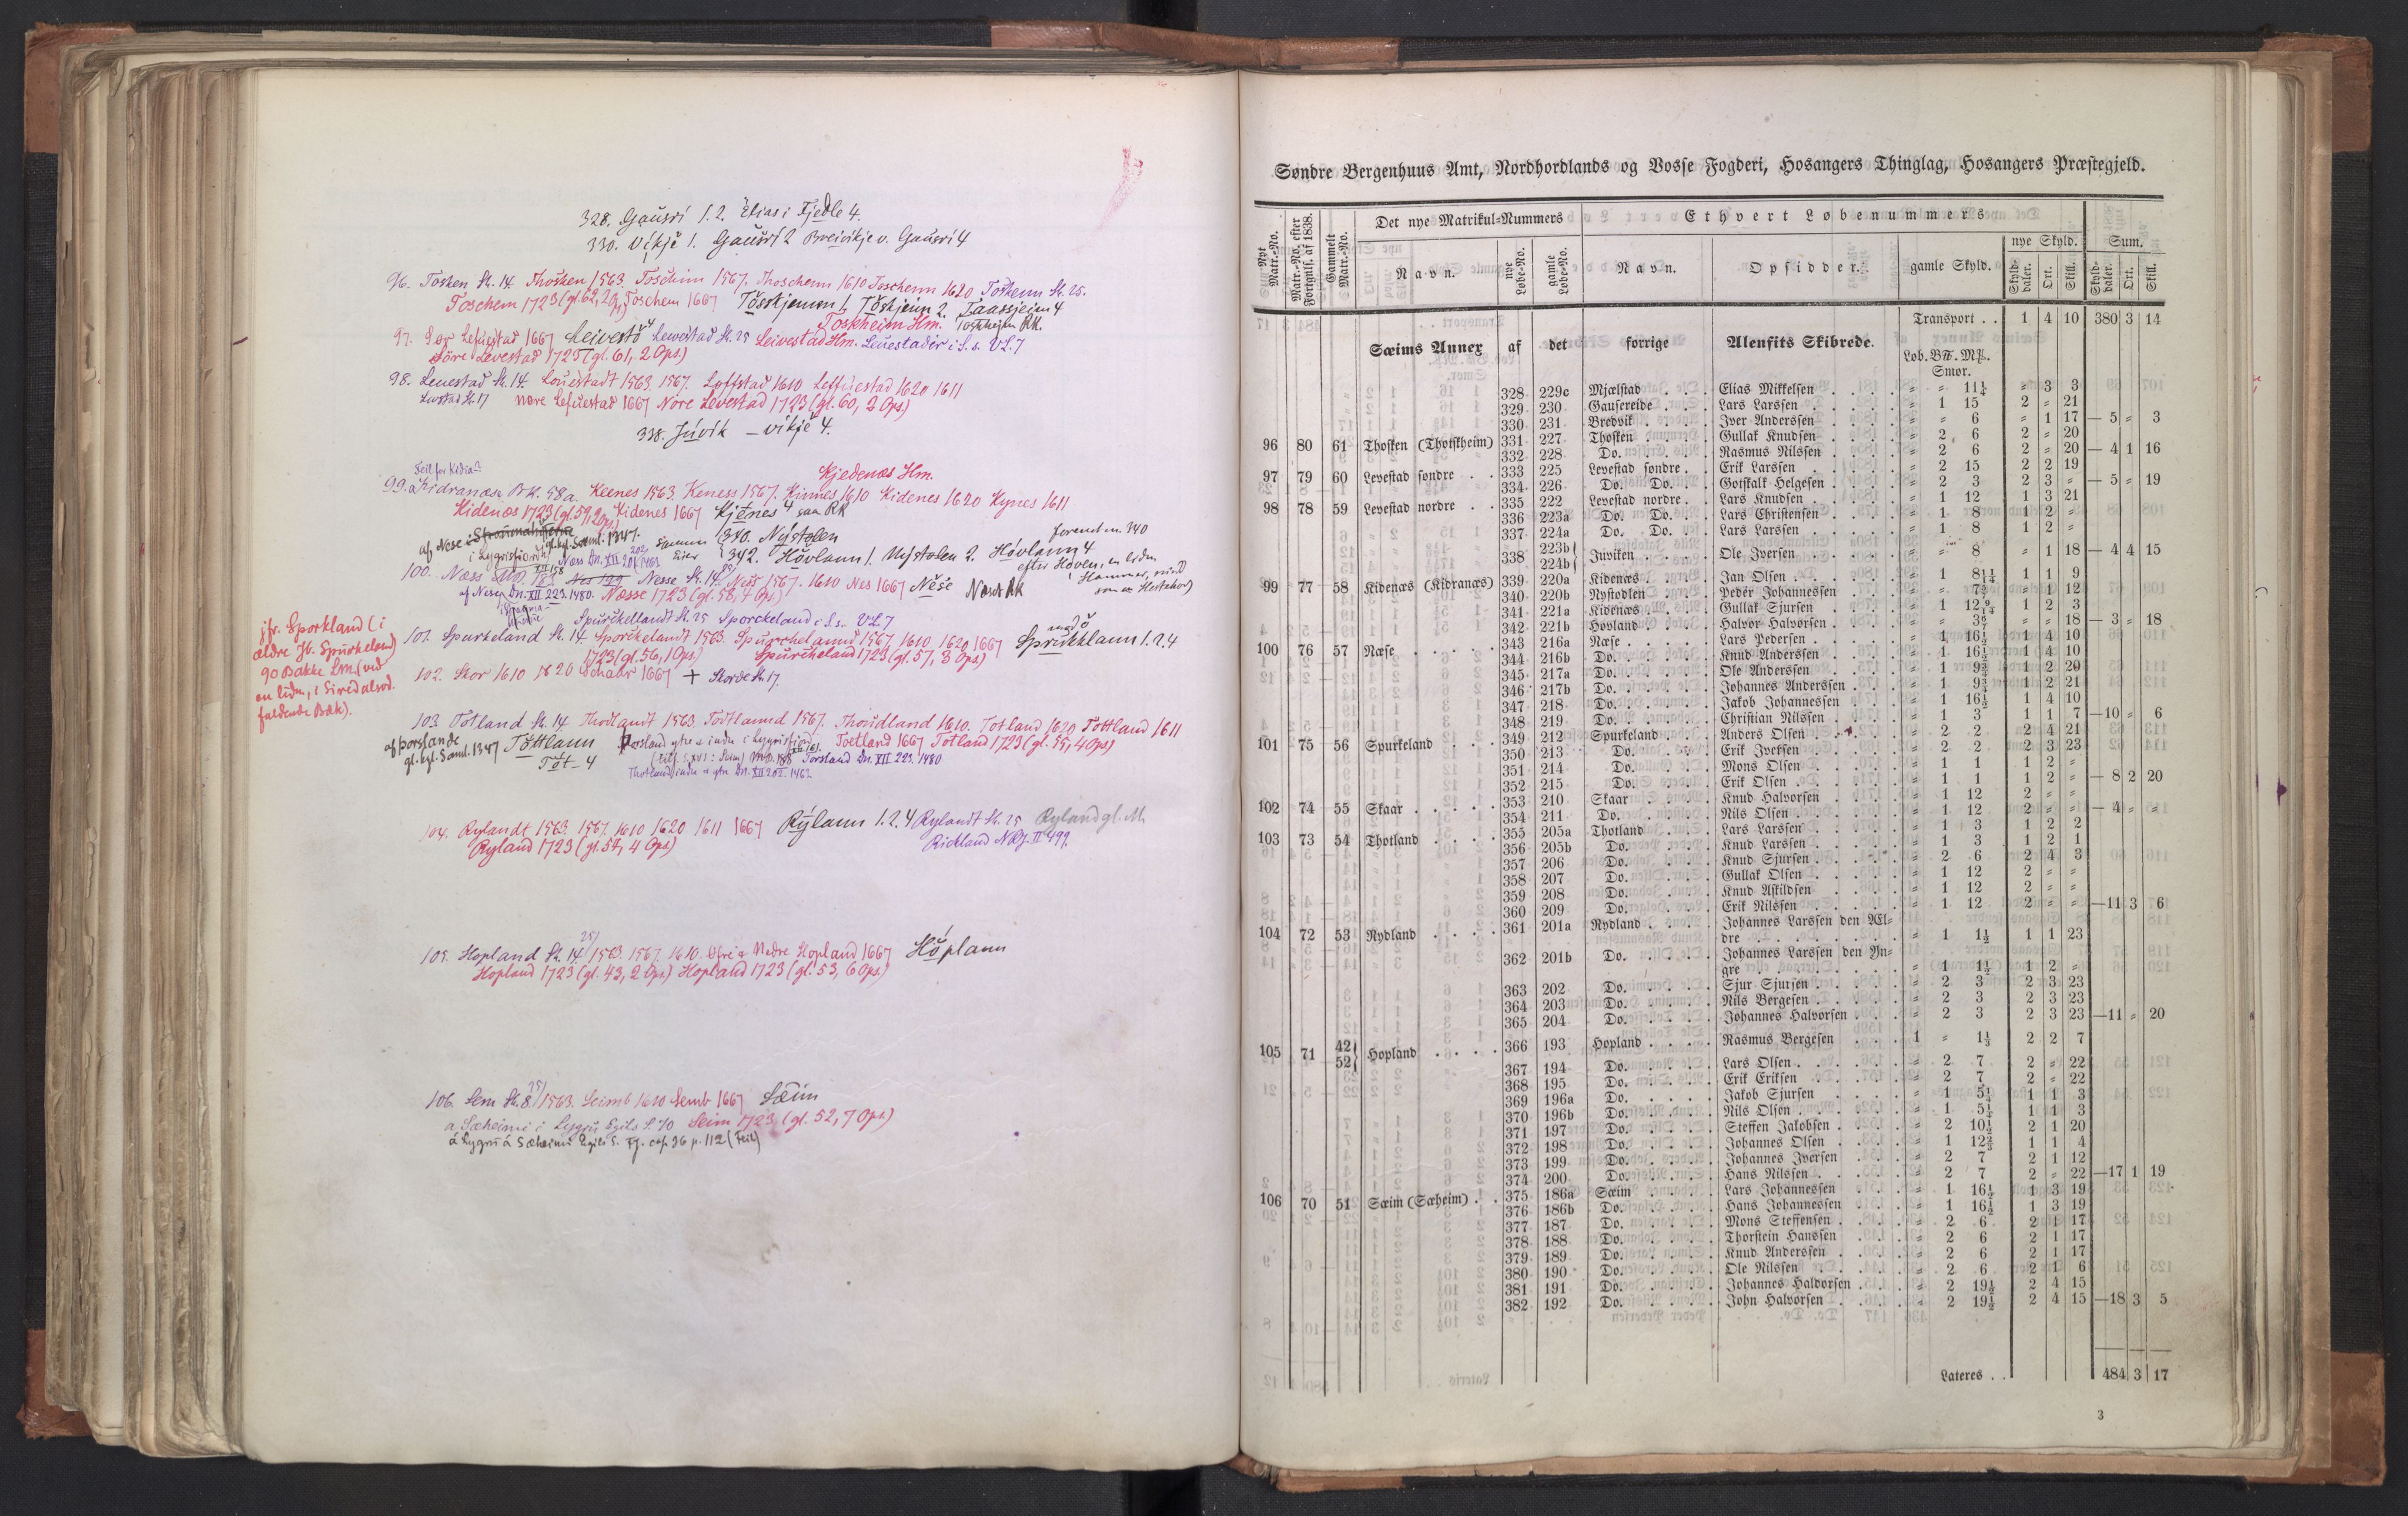 328. Gausri 1.2. Elias i Fjedle 4.
330. Vikje 1. Gausri 2 Breivikje v. Gausri 4
96. Tosken St. 14. Thosken 1563. Toscheim 1567. Thoschem 1610 Toschem 1620 Toskem St. 25.
Toschem 1723 (gl. 62, 2 Ops.) Toschem 1667 Töskjemen 1, Töskjeim 2. Taassjeim 4
Toskheim Hm. Toskheim RK.
97. Sør Lefuestad 1667 Leivestö 4 Lewestad St. 25 Leivestad Hm. Leuestader i S. s. VL. 7
Söre Levestad 1723 (gl. 61, 2 Ops.)
98. Leuestad St. 14. Louestadt 1563. 1567. Loffstad 1610 Leffuestad 1620 1611
Nore Lefuestad 1667 Nore Levestad 1723 (gl. 60, 2 Ops.)
338. Júvik – vikje 4.
Feil for Kidia-?
Kjedenæs Hm.
99. Kidranæse BK. 58a. Keenes 1563. Keness 1567. Kinnes 1610 Kidenes 1620 Kynes 1611
Kidenæs 1723 (gl. 59, 2 Ops.) Kidenes 1667 Kjenes 4 saa RK
340. Nystölen
342. Hövlann 1. Nystölen 2. Hövlann 4
100. Næss Nesse St. 14. Ness 1567. 1610 Nes 1667 Nese Næse RK
af Nese Dn. XII 223. 1480. Næsse 1723 (gl. 58, 7 Ops.)
Spurckellandt St. 25 Sporckeland i S. s. VL. 7
101. Spurkeland St. 14. Sporckelandt 1563. Spurchelannd 1567, 1610, 1620 1667 Sprukklann 1.2.4
1723 (gl. 56, 1 Ops.) Spurckeland 1723 (gl. 57, 3 Ops.)
jfr. Sporkland (i
ældre Jb. Spurkeland)
90 Bakke Lm. (ved
en liden, i Siredalsvd.
faldende Bæk).
102. Skor 1610 1620 Schaar 1667 + Skorde St. 17.
103. Totland St. 14. Thodlandt 1563. Todtlannd 1567. Thoudland 1610. Totland 1620 Tottland 1611
af Þorslande
gl. kgl. Saml. 1347 Töttlann Toetland 1667 Totland 1723 (gl. 55, 4 Ops)
Töt- 4 Torsland Dn. XII 223. 1480
104. Rylandt 1563. 1567. 1610 1620 1611 1667 Rýlann 1.2.4 Rylandt St. 25 Ryland gl. M.
Ryland 1723 (gl. 54, 4 Ops) Rickland NRJ. II 499.
105. Hopland St. 14 25/ 1563. 1567. 1610. Øfre & Nedre Hopland 1667 Höplann
Hopland 1723 (gl. 43, 2 Ops) Hopland 1723 (gl. 53, 6 Ops.)
106. Sem St. 8. 25/ 1563. Seimb 1610 Semb 1667 Sæim
a Sæheimi i Lygru Egils S. 70 Seim 1723 (gl. 52, 7 Ops.)
á Lygru á Sæheimi Egils S. FJ. cap. 36 p. 112 (Feil)
Søndre Bergenhuus Amt, Nordhordlands og Vosse Fogderi, Hosangers Thinglag, Hosangers Præstegjeld.
Nyt Matr.-No. Matr.-No. efter Fortegnls. af 1838. Gammelt Matr.-No. Det nye Matrikul-Nummers Ethvert Løbenummers
Navn. nye Løbe-No. gamle Løbe-No. Navn. Opsidder. gamle Skyld. nye Skyld. Sum.
Skylddaler. Ort. Skill. Skylddaler. Ort. Skill.
Transport . . 1 4 10 380 3 14
Sæims Annex af det forrige Alensfits Skibrede. Løb. B℔. M℔.
Smør.
328 229c Mjælstad Elias Mikkelsen " " 11¼ " 3 3
329 230 Gausereide Lars Larssen " 1 15 2 " 21
330 231 Bredvik Iver Anderssen " " 6 " 1 17 — 5 " 3
96 80 61 Thosken (Thotskheim) 331 227 Thosken Gullak Knudsen " 2 6 2 " 20
332 228 Do. Rasmus Nilssen " 2 6 2 " 20 — 4 1 16
97 79 60 Levestad søndre 333 225 Levestad søndre Erik Larssen " 2 15 2 2 19
334 226 Do. Do. Gotskalk Helgesen " 2 3 2 3 " — 5 " 19
98 78 59 Levestad nordre 335 222 Levestad nordre Lars Knudsen " 1 12 1 3 21
336 223a Do. Do. Lars Christensen " 1 8 1 2 "
337 224a Do. Do. Lars Larssen " 1 8 1 2 "
338 223b 224b Juviken Ole Iversen " " 8 " 1 18 — 4 4 15
99 77 58 Kidenæs (Kidranæs) 339 220a Kidenæs Jan Olsen " 1 8 1 1 9
340 220b Nystødlen Peder Johannessen " " " 1 12
341 221a Kidenæs Gullak Sjursen " 1 12 1 2 3
342 221b Hovland Halvor Halvorsen " " " " 18 — 3 " 18
100 76 57 Næse 343 216a Næse Lars Pedersen " 1 16½ 1 4 10
344 216b Do. Knud Anderssen " 1 16½ 1 4 10
345 217a Do. Ole Anderssen " 1 9¾ 1 2 20
346 217b Do. Johannes Anderssen " 1 9¾ 1 2 21
347 218 Do. Jakob Johannessen " 1 16½ 1 4 10
348 219 Do. Christian Nilssen " 1 3 1 1 7 —10 " 6
101 75 56 Spurkeland 349 212 Spurkeland Anders Olsen " 2 2 2 4 21
350 213 Do. Erik Ivetsen " 2 2 2 3 23
351 214 Do. Mons Olsen " 1 1 1 2 "
352 215 Do. Erik Olsen " 1 1 1 2 " — 8 2 20
102 74 55 Skaar 353 210 Skaar Knud Halvorsen " 1 12 2 " "
354 211 Do. Nils Olsen " 1 12 2 " " — 4 " "
103 73 54 Thotland 355 205a Thotland Lars Larssen " 1 3 1 2 2
356 205b Do. Knud Larssen " 1 3 1 2 1
357 206 Do. Knud Sjursen " 2 6 2 4 3
358 207 Do. Gullak Olsen " 1 12 2 " "
359 208 Do. Knud Askildsen " 1 12 2 " "
360 209 Do. Erik Nilssen " 1 12 2 " " —11 3 6
104 72 53 Rydland 361 201a Rydland Johannes Larssen den Æl-
dre " 1 1½ 1 1 23
362 201b Do. Johannes Larssen den Yn-
gre " 1 1½ 1 2 "
363 202 Do. Sjur Sjursen " 2 3 2 3 23
364 203 Do. Nils Bergesen " 2 3 2 3 23
365 204 Do. Johannes Halvorsen " 2 3 2 3 23 —11 " 20
105 71 42 52 Hopland 366 193 Hopland Rasmus Bergesen 1 " 1⅓ 2 2 7
367 194 Do. Lars Olsen " 2 7 2 " 22
368 195 Do. Erik Eriksen " 2 7 2 " 22
369 196a Do. Jakob Sjursen " 1 5¼ 1 1 3
370 196b Do. Nils Olsen " 1 5¼ 1 1 3
371 197 Do. Steffen Jakobsen " 2 10½ 2 1 20
372 198 Do. Johannes Olsen " 1 12⅔ 1 1 4
373 199 Do. Johannes Iversen " 2 7 2 1 12
374 200 Do. Hans Nilssen " 2 7 2 " 22 —17 1 19
106 70 51 Sæim (Sæheim) 375 186a Sæim Lars Johannessen " 1 16½ 1 3 19
376 186b Do. Hans Johannessen " 1 16½ 1 3 19
377 187 Do. Mons Steffensen " 2 6 2 1 17
378 188 Do. Thorstein Hanssen " 2 6 2 1 17
379 189 Do. Knud Anderssen " 2 6 2 1 17
380 190 Do. Ole Nilssen " 2 6 2 1 6
381 191 Do. Johannes Haldorsen " 2 19½ 2 4 15
382 192 Do. John Halvorsen " 2 19½ 2 4 15 —18 3 5
Lateres . . 484 3 17
3